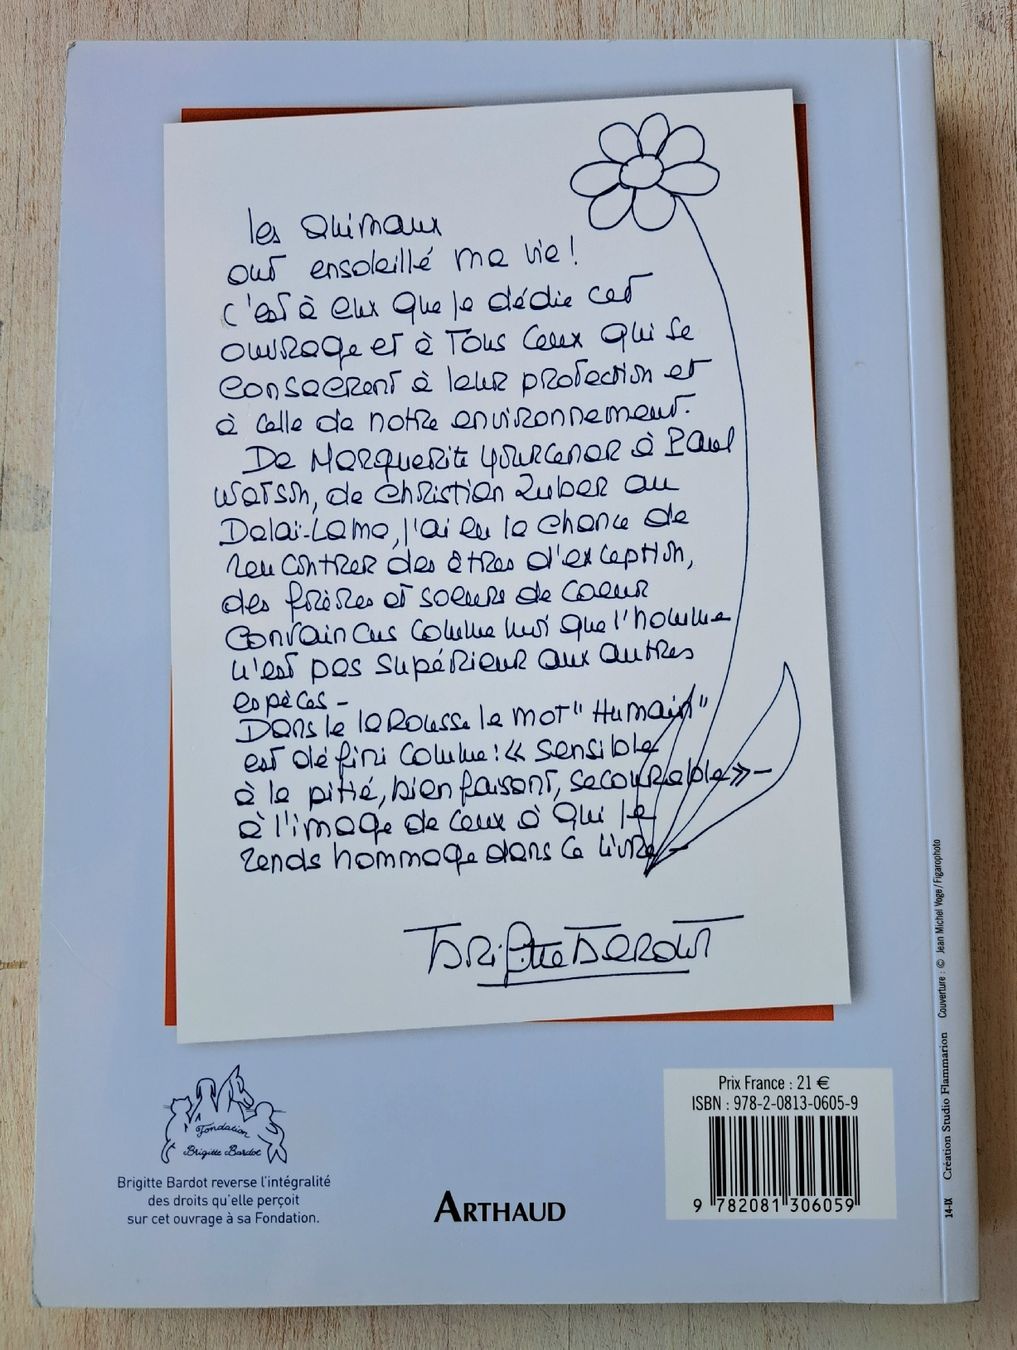 les animaux
ont ensoleillé ma vie !
C'est à eux que je dédie cet
ouvrage et à Tous ceux qui se
consacrent à leur protection et
à celle de notre environnement.
De Marguerite Yourcenar à Paul
Watson, de Christian Zuber au
Dalaï-Lama, j'ai eu la chance de
rencontrer des êtres d'exception,
des frères et soeurs de coeur
convaincus comme moi que l'homme
n'est pas supérieur aux autres
espèces -
Dans le larousse le mot "Humain"
est défini comme : « sensible
à la pitié, bienfaisant, secourable » -
à l'image de ceux à qui je
rends hommage dans ce livre -
Brigitte Bardot
Fondation
Brigitte Bardot
Brigitte Bardot reverse l'intégralité
des droits qu'elle perçoit
sur cet ouvrage à sa Fondation.
ARTHAUD
Prix France : 21 €
ISBN : 978-2-0813-0605-9
9 782081 306059
14-IX Création Studio Flammarion Couverture : © Jean Michel Voge/Figarophoto